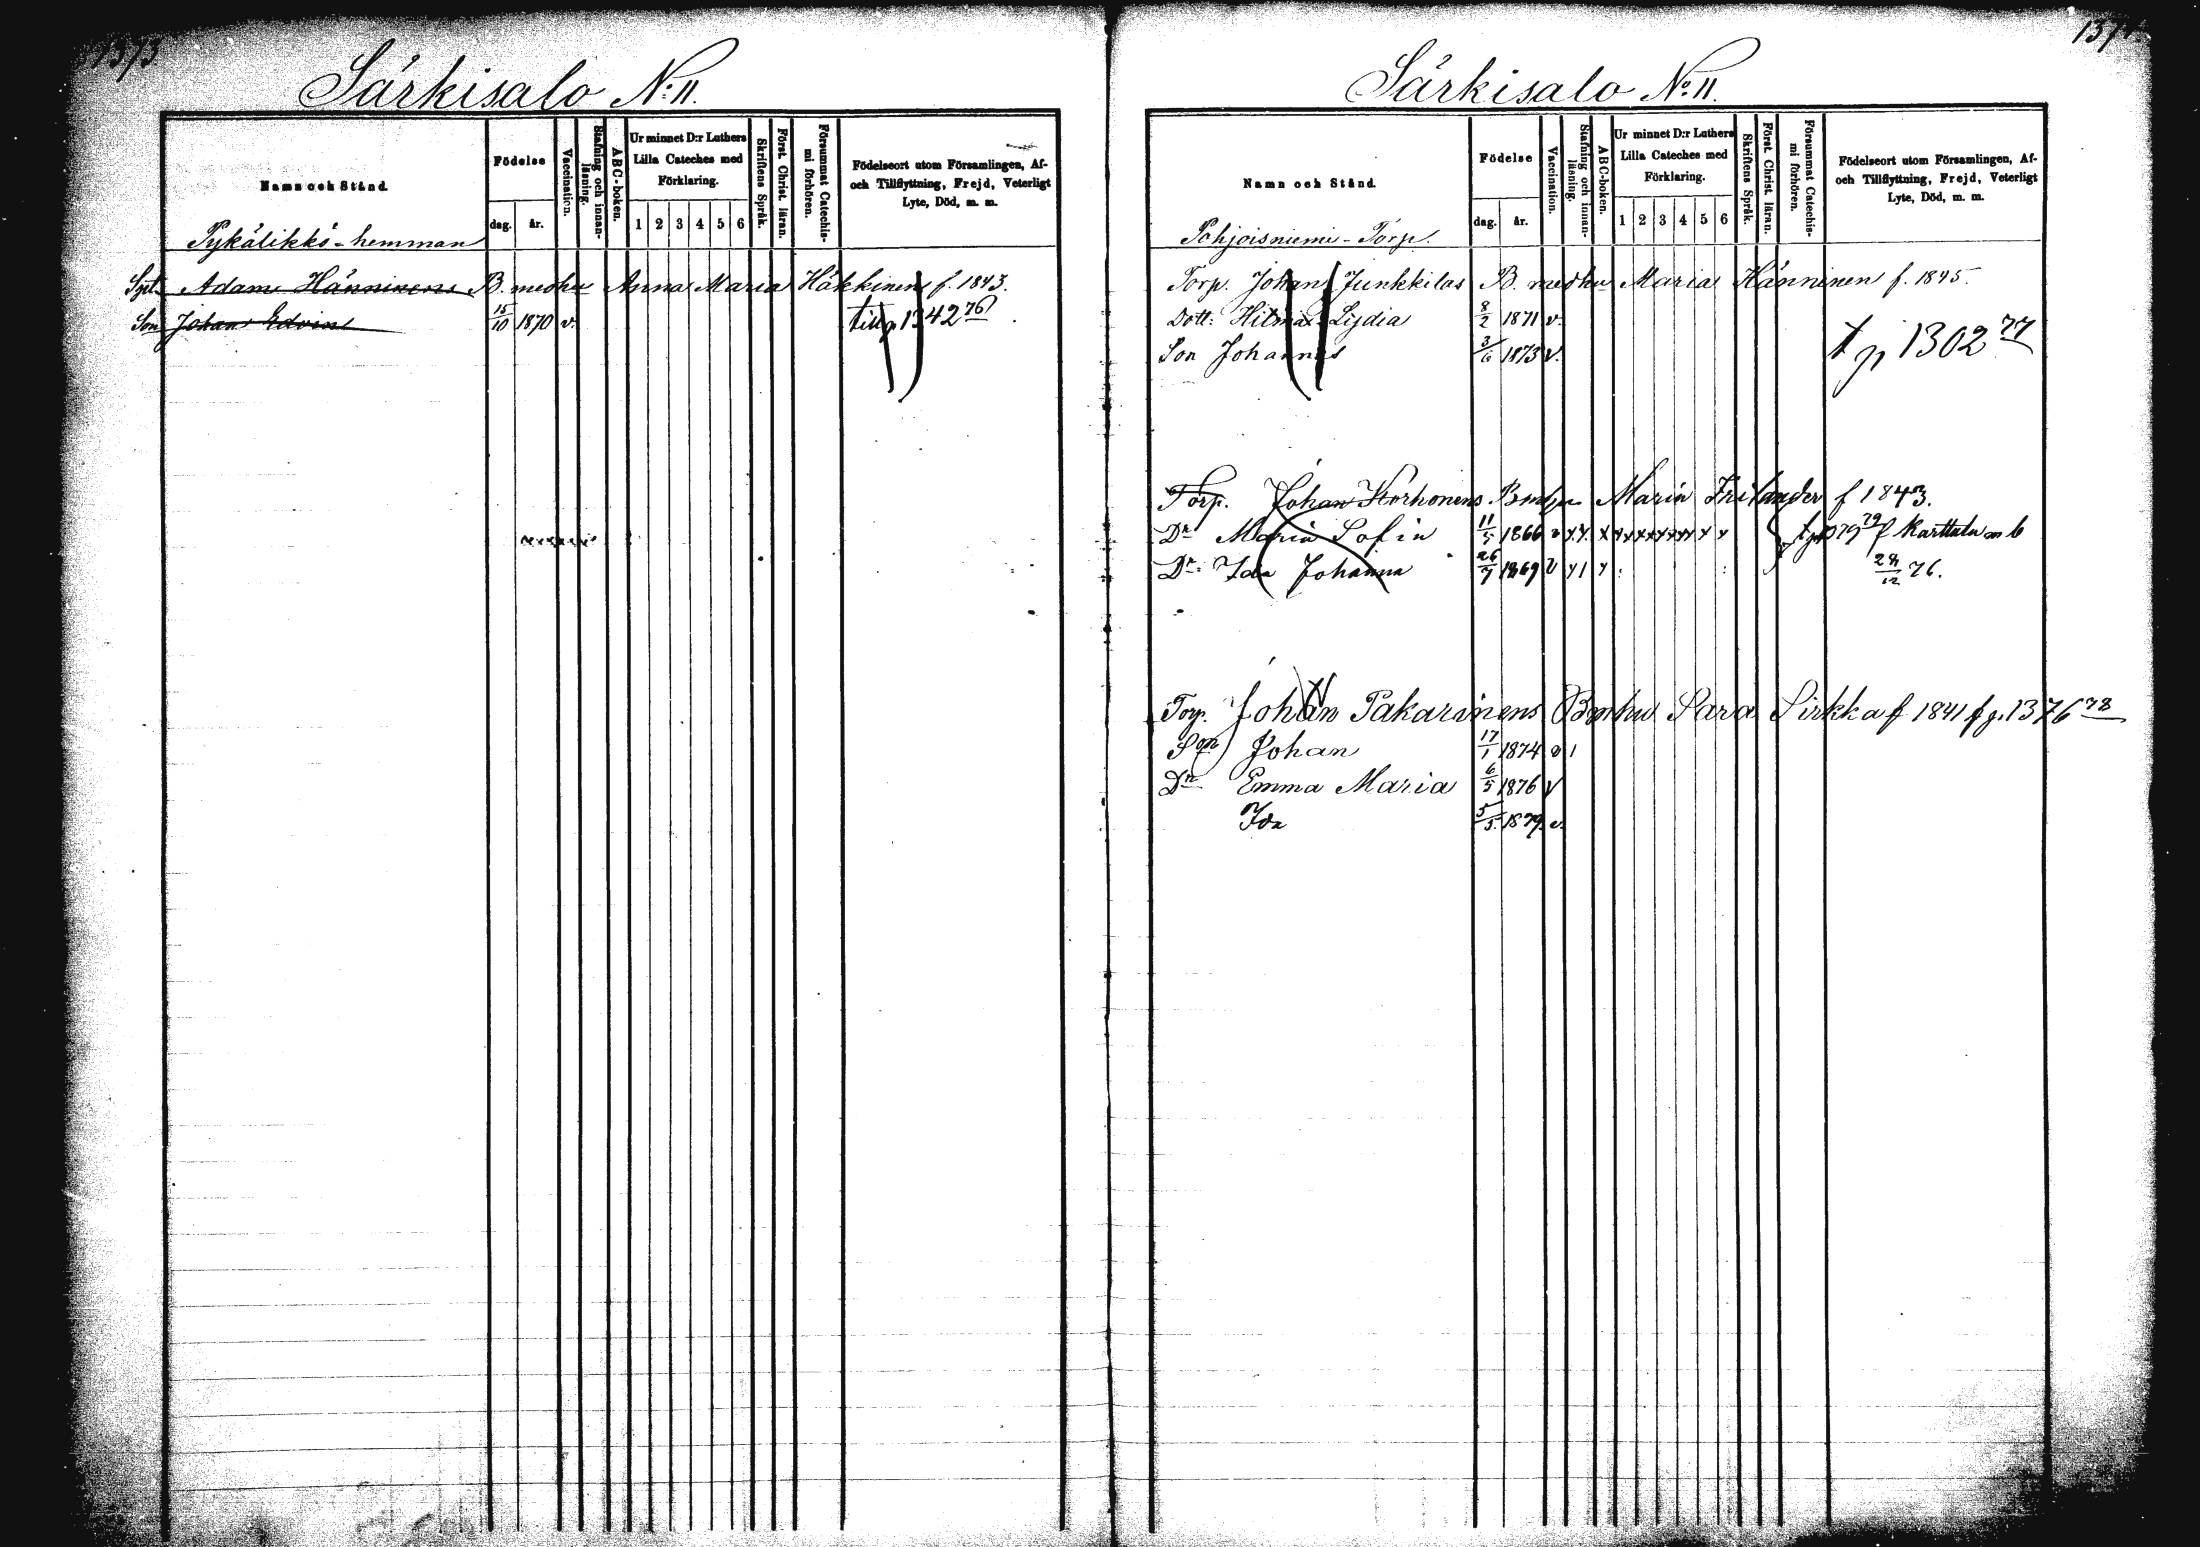 1373
Särkisalo N:o 11.
Namn och Stånd.
Födelse
dag.
år.
Vaccination.
Stafning och innan-läsning.
ABC-boken.
Ur minnet D:r Luthers
Lilla Cateches med
Förklaring.
1 2 3 4 5 6
Skriftens Språk.
Först. Christ. läran.
Försummat Catechis-
mi förhören.
Födelseort utom Församlingen, Af-
och Tillflyttning, Frejd, Veterligt
Lyte, Död, m. m.
Pykälikkö-hemman
Syt. Adam Hänninens B. med hu Anna Maria Häkkinen f. 1843.
Son Johan Edvin 15/10 1870 v. till p 1342 76
1374
Särkisalo No. 11.
Namn och Stånd.
Födelse
dag.
år.
Vaccination.
Stafning och innan-
läsning.
ABC-boken.
Ur minnet D:r Luthers
Lilla Cateches med
Förklaring.
1 2 3 4 5 6
Skriftens Språk.
Först. Christ. läran.
Försummat Catechis-
mi förhören.
Födelseort utom Församlingen, Af-
och Tillflyttning, Frejd, Veterligt
Lyte, Död, m. m.
Pohjoisniemi-Torp.
Torp. Johan Junkkilas B. med hu Maria Hänninen f. 1845.
Dott: Hilma Lydia 8/2 1871 v.
Son Johannes 3/6 1873 v. t p 1302 77
Torp. Johan Korhonens Maria Frilander f 1843.
Dr Maria Sofia 11/5 1866 v f Karttula m b
Dr: Ida Johanna 26/7 1869 v 28/12 76.
Torp. Johan Pakarinens Bmhu Sara Sirkka f 1841 f p. 1376 78
Son Johan 17/1 1874 v 1
Dr Emma Maria 6/5 1876 v
Ida 5/5 1879 v.